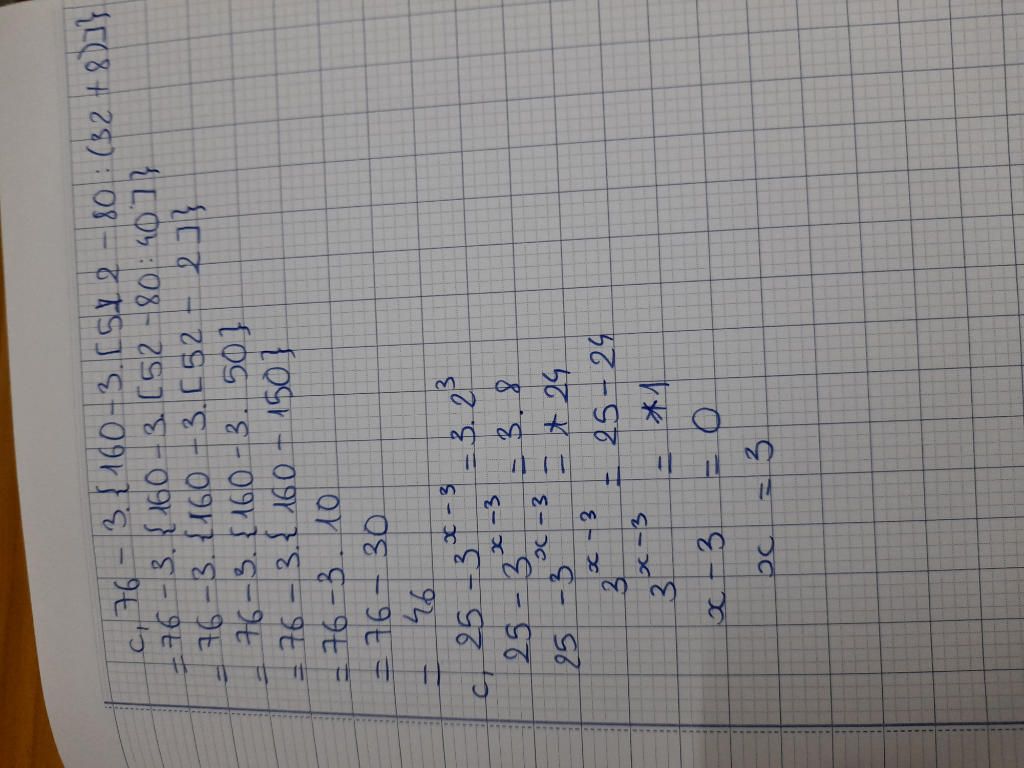 c, 76 - 3.{160 - 3.[52 - 80 : (32 + 8)]}
= 76 - 3.{160 - 3.[52 - 80 : 40]}
= 76 - 3.{160 - 3.[52 - 2]}
= 76 - 3.{160 - 3. 50}
= 76 - 3.{160 - 150}
= 76 - 3. 10
= 76 - 30
= 46
c, 25 - 3^{x-3} = 3.2^3
25 - 3^{x-3} = 3. 8
25 - 3^{x-3} = 24
3^{x-3} = 25 - 24
3^{x-3} = 1
x - 3 = 0
x = 3